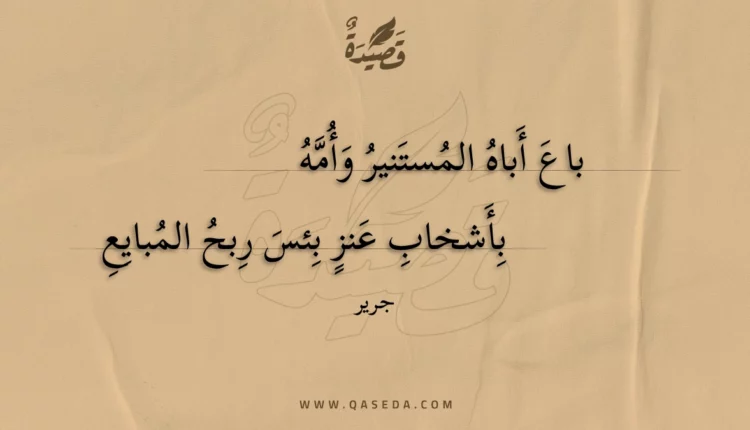 قَصِيْدَةٌ
باعَ أَباهُ المُستَنيرُ وَأُمَّهُ
بِأَشخابِ عَنزٍ بِئسَ رِبحُ المُبايِعِ
جرير
WWW.QASEDA.COM